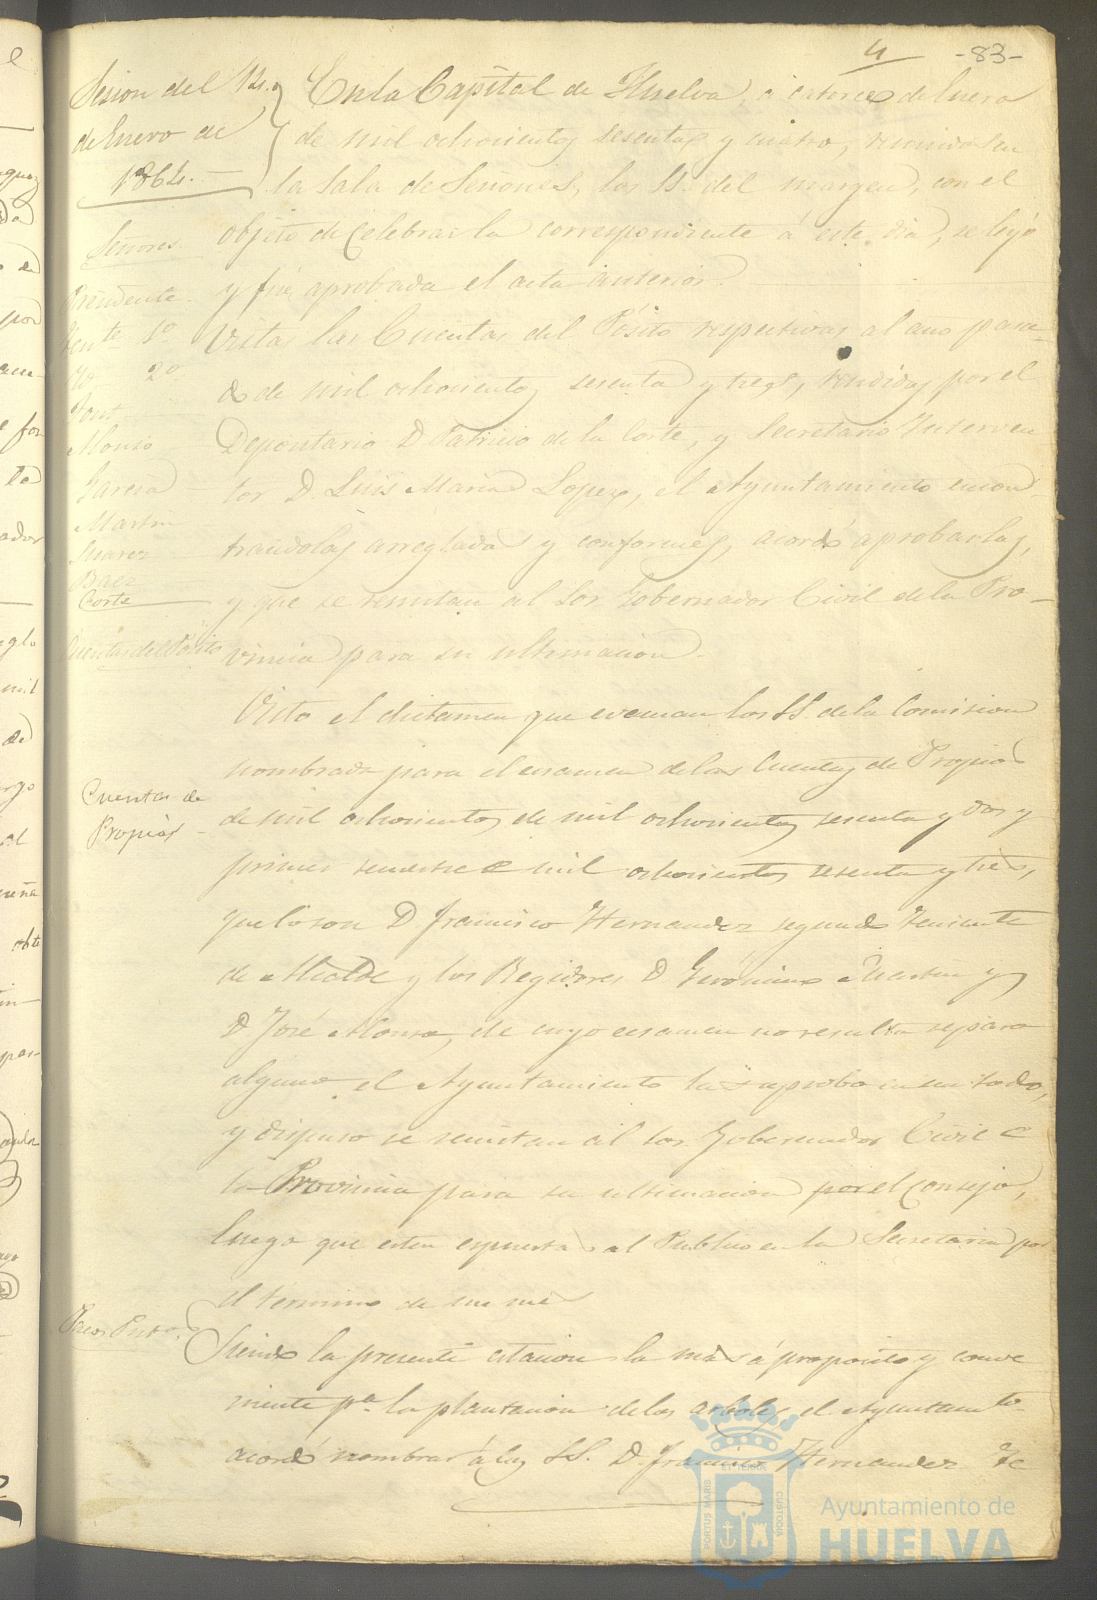 4 -83-
Sesion del 14
de Enero de
1864.
Señores
Presidente
Tente 1º
Yd 2º
Font
Alonso
Garcia
Martin
Suarez
Baez
Corte
En la Capital de Huelva, á catorce de Enero
de mil ochocientos sesenta y cuatro, reunidos en
la Sala de Sesiones, los SS. del margen, con el
objeto de Celebrar la correspondiente á este dia, se leyó
y fué aprobada el acta anterior.
Cuentas del Pósito
Vistas las Cuentas del Pósito respectivas al año pasa-
do de mil ochocientos sesenta y tres, rendidas por el
Depositario D. Patricio de la Corte, y Secretario Interven
tor D. Luis Maria Lopez, el Ayuntamiento encon
trandolas arregladas y conformes, acordó aprobarlas,
y que se remitan al Sor Gobernador Civil de la Pro-
vincia para su ultimacion.
Cuentas de
Propios
Visto el dictamen que evacuan los SS. de la Comision
nombrada para el ecsamen de las Cuentas de Propios
de mil ochocientos de mil ochocientos sesenta y dos y
primer semestre de mil ochocientos sesenta y tres,
que lo son D Francisco Hernandez segundo Teniente
de Alcalde y los Regidores D. Gerónimo Martin y
D José Alonso, de cuyo ecsamen no resulta reparo
alguno, el Ayuntamiento las aprobó en un todo,
y dispuso se remitan al Sor. Gobernador Civil de
la Provincia para su ultimacion por el Consejo,
luego que esten espuestas al Publico en la Secretaria por
el término de un mes
Siendo la presente estacion la mas á proposito y conve
niente pª la plantacion de los arboles, el Ayuntamto
acordó nombrar á los SS. D. Francisco Hernandez Te
PORTUS MARIS
ET TERRÆ
CUSTODIA
Ayuntamiento de
HUELVA